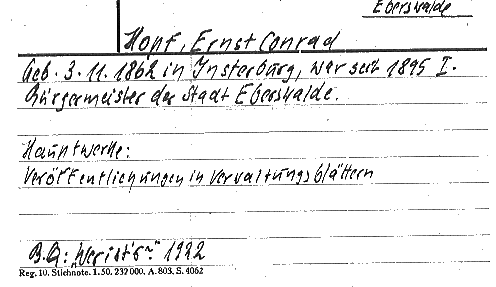 Eberswalde
Hopf, Ernst Conrad
Geb. 3.11.1862 in Insterburg, war seit 1895 I.
Bürgermeister der Stadt Eberswalde.
Hauptwerke:
Veröffentlichungen in Verwaltungsblättern
B.Q.: „Wer ist's?" 1922
Reg. 10. Stichnote. 1. 50. 232000. A. 803. S. 4062